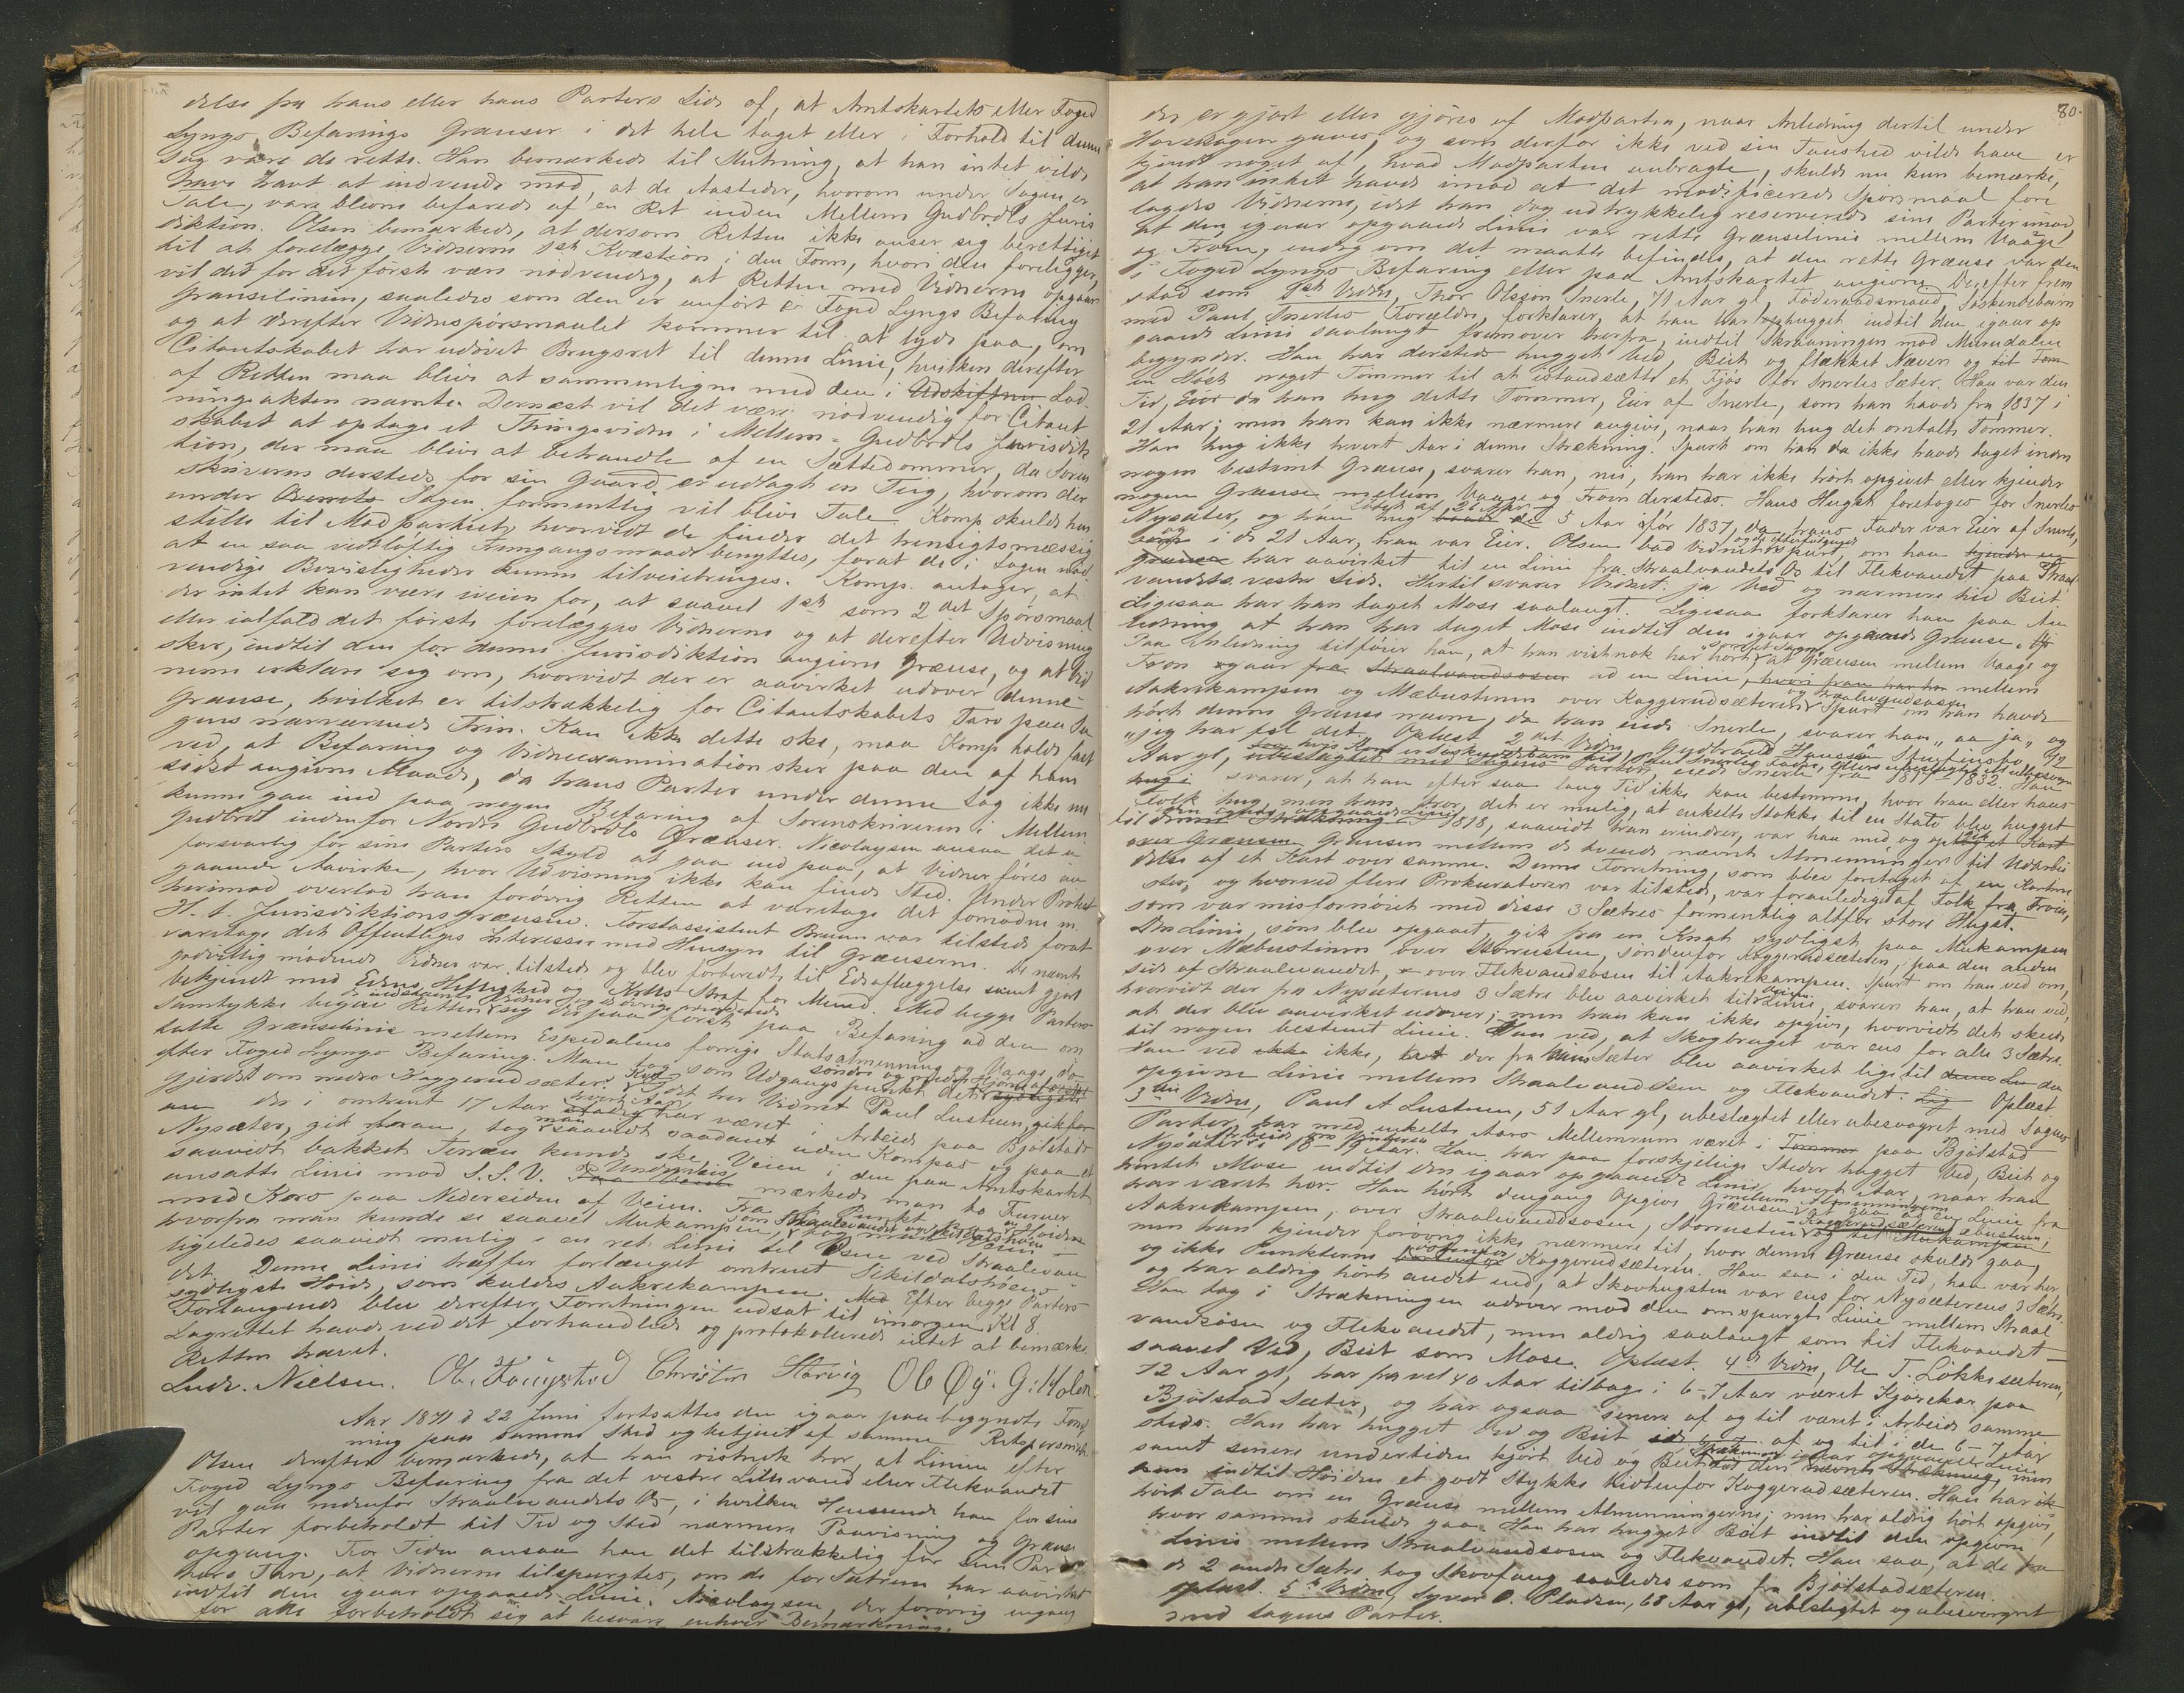 delse fra hans eller hans Parters Side af, at Amtskartets eller Foged
Lyngs Befarings Grænser i det hele taget eller i Forhold til denne
Sag være de rette. Han bemærkede til Slutning, at han intet vilde
have havt at indvende mod, at de Aasteder, hvorom under Sagen er
Tale, vare blevne befarede af en Ret inden Mellem Gudbrdls Juris
diktion. Olsen bemærkede, at dersom Retten ikke anser sig berettiget
til at forelægge Vidnerne 1ste Kvæstion i den Form, hvori den foreligger,
vil det for det først være nødvendig, at Retten med Vidnerne opgaar
Grænselinien, saaledes som den er anført i Foged Lyngs Befaring
og at derefter Vidnespørsmaalet kommer til at lyde paa, om
Citantskabet har udøvet Brugsret til denne Linie, hvilken derefter
af Retten maa blive at sammenligne med den i Udskiftnin Lod-
ningsakten nævnte. Dernæst vil det være nødvendig for Citant
skabet at optage et Thingsvidne i Mellem-Gudbrdls Jurisdik
tion, der maa blive at behandle af en Sættedommer, da Soren
skriveren dersteds for sin Gaard er udlagt en Teig, hvorom der
under Sagen formentlig vil blive Tale. Komp. skulde hen
stille til Modpartiet, hvorvidt de finder det hensigtsmæssig
at en saa vidtløftig Fremgangsmaade benyttes, forat de i Sagen nød
vendige Bevisligheder kunne tilveiebringes. Komp. antager, at
der intet kan være iveien for, at saavel 1ste som 2det Spørsmaal
eller ialfald det første forelægges Vidnerne og at derefter Udvisning
sker, indtil den for denne Jurisdiktion angivne Grænse, og at Vid
nerne erklære sig om, hvorvidt der er aavirket udover denne
Grænse, hvilket er tilstrækkelig for Citantskabets Tarv paa Sa
gens nærværende Trin. Kan ikke dette ske, maa Komp. holde fast
ved, at Befaring og Vidneexamination sker paa den af ham
sidst angivne Maade, da hans Parter under denne Sag ikke
kunne gaa ind paa nogen Befaring af Sorenskriveren i Mellem
Gudbrdl indenfor Nordre Gudbrdls Grænser. Nicolaysen ansaa det u
forsvarlig for sine Parters Skyld at gaa ind paa, at Vidner føres an
gaaende Aavirke, hvor Udvisning ikke kan finde Sted. Under Protest
herimod overlod han forøvrig Retten at varetage det fornødne m.
H. t. Jurisdiktionsgrænsen. Forstassistent Bruun var tilstede forat
varetage det Offentliges Interesser med Hensyn til Grænserne. De nævnte
godvillig mødende Vidner var tilstede og blev forberedt til Edsaflæggelse samt gjort
bekjendt med Edens Hellighed og Straf for Mened. Med begge Parters
Samtykke begav Retten sig derpaa først paa Befaring ad den om
talte Grænselinie mellem Espedalens forrige Statsalmenning og Vaage do
efter Foged Lyngs Befaring. Man tog som Udgangspunkt det
Gjerdet om nedre Kaggerudsæter. det har Vidnet Paul Lusteun, gik for
an der i omtrent 17 Aar hvert Aar har været i Arbeide paa Bjølstads
Nysæter, gik foran, tog man saavidt saadant uden Kompas og paa et
saavidt bakket Terræn kunde ske Veien i den paa Amtskartet
ansatte Linie mod S.S.V. Underveis mærkede man to Furuer
med Kors paa Nedersiden af Veien. Fra Punkt
hvorfra man kunde se saavel Mukampen, som Straalevandet
ligeledes saavidt mulig i en ret Linie til Osen ved Straalevan
det. Denne Linie træffer forlænget omtrent Sikildalshøens
sydligste Høide, som kaldes Aakrekampen. Efter begge Parters
Forlangende blev derefter Forretningen udsat til imorgen Kl 8.
Lagrettet havde ved det forhandlede og protokollerede intet at bemærke.
Retten hævet.
Ludv. Nielsen. Ol. Fougstad Christen Harvig Ol Øy. G. Holen
Aar 1871 d 22 Juni fortsattes den igaar paabegyndte Forret
ning paa samme Sted og betjent af samme Retspersonale.
Olsen derefter bemærkede, at han vistnok tror, at Linien efter
Foged Lyngs Befaring fra det vestre Lilevand eller Flekvandet
vil gaa nedenfor Straalevandets Os, i hvilken Henseende han for sine
Parter forbeholdt til Tid og Sted nærmere Paavisning og Grænse
opgang. For Tiden ansaa han det tilstrækkelig for sine Par
ters Tarv, at Vidnerne tilspurgtes, om de for Sætrene har aavirket
indtil den igaar opgaaede Linie. Nicolaysen, der forøvrig engang
for alle forbeholdt sig at besvare enhver Bemærkning,
80.
der er gjort eller gjøres af Modparten, naar Anledning dertil under
Hovedsagen gaves, og som derfor ikke ved sin Taushed vilde have er
kjendt noget af, hvad Modparten anbragte, skulde nu kun bemærke,
at han intet havde imod at det modificerede Spørsmaal fore
lagdes Vidnerne, idet han dog udtrykkelig reserverede sine Parter imod,
at den igaar opgaaede Linie var rette Grænselinie mellem Vaage
og Fron, endog om det maatte befindes, at den rette Grænse var den
i Foged Lyngs Befaring eller paa Amtskartet angivne. Derefter frem
stod som 1ste Vidne, Thor Olsen Snerle, 71 Aar gl, Føderaadsmand, Søskendebarn
med Paul Snerles Forældre, forklarer, at han har hugget indtil den igaar op
gaaede Linie saalangt fremover herfra, indtil Skraaningen mod Murudalen
begynder. Han har dersteds hugget Ved, Beit og flækket Næver og
en Høst noget Tømmer til at istandsætte et Fjøs for Snerles Sæter. Han var den
Tid, da han hug dette Tømmer, Eier af Snerle, som han havde fra 1837 i
21 Aar; men han kan ikke nærmere angive, naar han hug det omtalte Tømmer.
Han hug ikke hvert Aar i denne Strækning. Spurt om han da ikke havde taget inden
nogen bestemt Grænse, svarer han, nei, han har ikke hørt opgivet eller kjender
nogen Grænse mellem Vaage og Fron dersteds. Hans Hugst foretages for Snerles
Nysæter, og han hug 5 Aar før 1837, da hans Fader var Eier af Snerle,
og i de 21 Aar, han var Eier. Olsen bad Vidnet spurt, om han
har aavirket til en Linie fra Straalvandets Os til Flekvandet paa Straal
vandets vestre Side. Hertil svarer Vidnet: ja Ved og nærmere hid Beit.
Ligesaa har han taget Mose saalangt. Ligesaa forklarer han paa An
ledning at han har taget Mose indtil den igaar opgaaede Grænse.
Paa Anledning tilføier han, at han vistnok har hørt at Grænsen mellem Vaage og
Fron gaar ad en Linie, mellem
Aakrekampen og Mæbustenen over Kaggerudsæteren og Straalevandsosen. Spurt om han havde
hørt denne Grænse nævne, da han eiede Snerle, svarer han „aa ja“ og
„jeg har vel det“. Oplæst. 2det Vidne, Gudbrand Hansen Stuflusbø, 67
Aar gl, eiede Snerle fra 1817-1832. Han
svarer, at han efter saa lang Tid ikke kan bestemme, hvor han eller hans
Folk hug, men han tror, det er mulig, at enkelte Stokke til en Stale blev hugget
til 1818, saavidt han erindrer, var han med og optog et Kart
Grænsen mellem de tvende nævnte Almenninger til Udarbei
delse af et Kart over samme. Denne Forretning, som blev foretaget af en
og hvorved flere Prokuratorer var tilstede, var foranlediget af Folk fra Fron,
som var misfornøiet med disse 3 Sætres formentlig altfor store Hugst.
Den Linie, som blev opgaaet, gik fra en Knat sydligst paa Mukampen
over Mæbustenen over Storrusten, søndenfor Kaggerudsæteren, paa den anden
Side af Straalevandet, over Flekvandsosen til Aakrekampen. Spurt om han ved om,
hvorvidt der fra Nysæterens 3 Sætre blev aavirket til Linie, svarer han, at han ved,
at der blev aavirket udover; men han kan ikke opgive, hvorvidt det skede
til nogen bestemt Linie. Han ved, at Skogbruget var ens for alle 3 Sætre.
Han ved ikke, at der fra hans Sæter blev aavirket lige til den
opgivne Linie mellem Straalevandsosen og Flekvandet. Oplæst.
3die Vidne, Paul A Lusteun, 51 Aar gl, ubeslægtet eller ubesvogret med Sagens
Parter, har med enkelte Aars Mellemrum været i paa Bjølstad
Nysæter i 18-19 Aar. Han har paa forskjellige Steder hugget Ved, Beit og
hentet Mose indtil den igaar opgaaede Linie hvert Aar, naar han
har været her. Han hørt dengang opgive Grænsen mellem Almenningerne at gaa ad en Linie fra
Aakrekampen, over Straalevandsosen, Storrusten
men han kjender forøvrig ikke nærmere til, hvor denne Grænse skulde gaa,
og ikke Punkterne Kaggerudsæteren. Han saa i den Tid, han var her,
og har aldrig hørt andet end, at Skovhugsten var ens for Nysæterens 3 Sætre.
Han tog i Strækningen udover mod den omspurgte Linie mellem Straal
vandsosen og Flekvandet, men aldrig saalangt som til Flekvandet
saavel Ved, Beit som Mose. Oplæst. 4de Vidne, Ole T. Løkkesæteren,
72 Aar gl, har fra vel 40 Aar tilbage i 6-7 Aar været Kjørekar paa
Bjølstad Sæter, og har ogsaa senere af og til været i Arbeide samme
steds. Han har hugget Ved og Beit af og til i de 6-7 Aar
samt senere undertiden kjørt Ved og Beit
indtil Høiden et godt Stykke hidtenfor Kaggerudsæteren. Han har ik
hørt Tale om en Grænse mellem Almenningerne; men har aldrig hørt opgive
hvor samme skulde gaa. Han har hugget Beit indtil den opgivne
Linie mellem Straalevandsosen og Flekvandet. Han saa, at de fra
de 2 andre Sætre tog Skovfang saaledes som fra Bjølstadsæteren.
Oplæst. 5te Vidne, Syver O. Pladsen, 68 Aar gl, ubeslægtet og ubesvogret
med Sagens Parter.